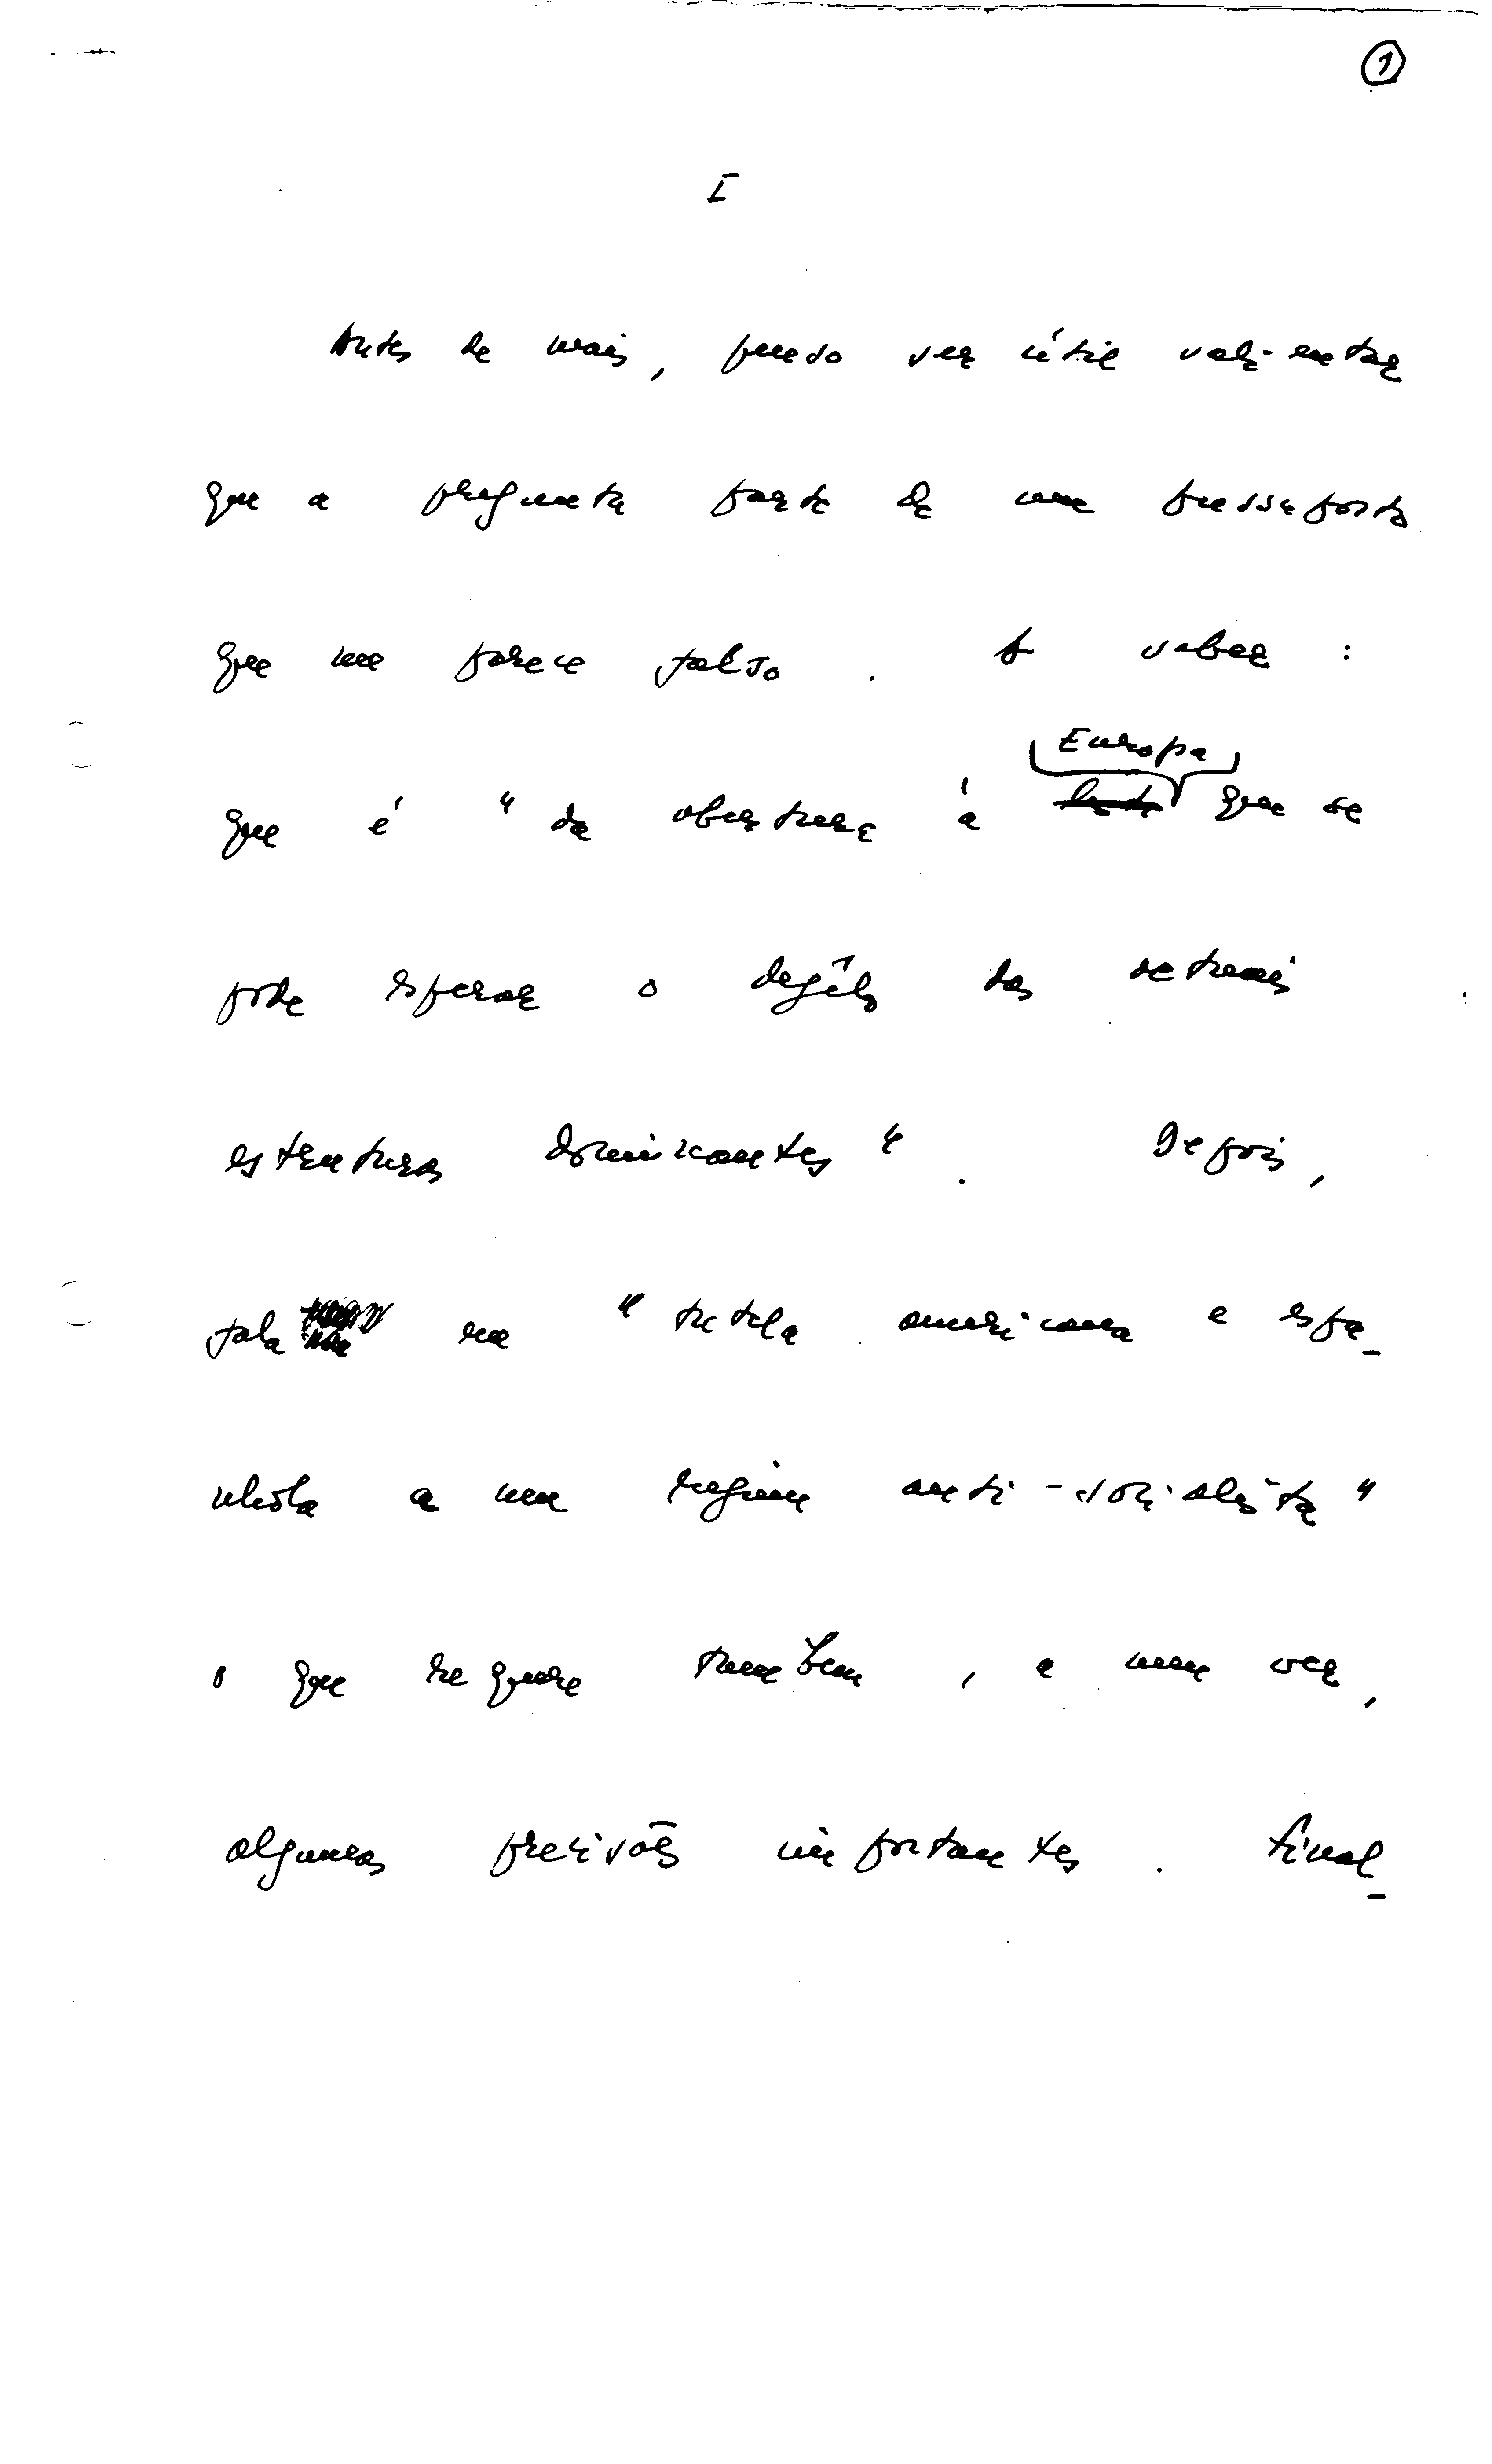 1
I
Antes de mais, penso ser útil salientar
que a pregunta parte de um pressuposto
que me parece falso. A saber:
Europa
que é "da abertura à que se
pode esperar o degêlo das actuais
estruturas dominantes". Depois,
fala em "tutela americana e espa-
nhola a um regime anti-socialista"
o que requere tambem, a meu ver,
algumas precisões importantes. Final-